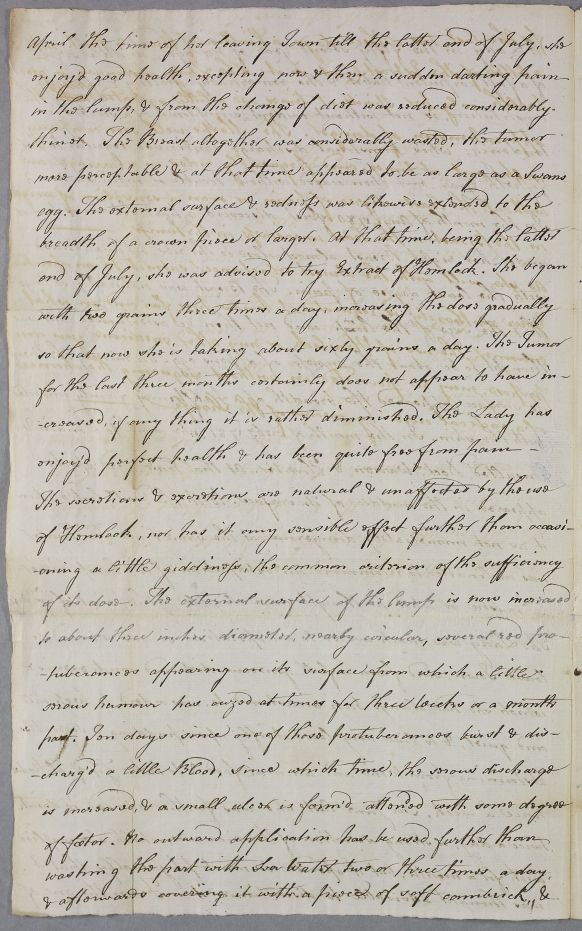 April the time of her leaving Town till the latter end of July, she
enjoy'd good health, excepting now & then a sudden darting pain
in the lump, & from the change of diet was reduced considerably
thiner. The Breast altogether was considerably wasted, the tumor
more perceptable & at that time appeared to be as large as a Swans
egg. The external surface & redness was likewise extended to the
breadth of a crown piece or larger. At that time, being the latter
end of July, she was advised to try Extract of Hemlock. She began
with two grains three times a day, increasing the dose gradually
so that now she is taking about sixty grains a day. The Tumor
for the last three months certainly does not appear to have in-
-creased, if any thing it is rather diminished. The Lady has
enjoy'd perfect health & has been quite free from pain -
The secretions & excretions are natural & unaffected by the use
of Hemlock, nor has it any sensible effect further than occasi-
-oning a little giddiness, the common criterion of the sufficiency
of its dose. The external surface of the lump is now increased
to about three inches diameter, nearby circular, several red pro-
-tuberances appearing on its surface from which a little
serous humour has ouzed at times for three weeks or a month
past. Ten days since one of those protuberances burst & dis-
-charg'd a little Blood, since which time, the serous discharge
is increased, & a small ulcer is form'd attended with some degree
of fœtor. No outward application has be used further than
washing the part with Sea Water two or three times a day
& afterwards covering it with a piece of soft cambrick, &